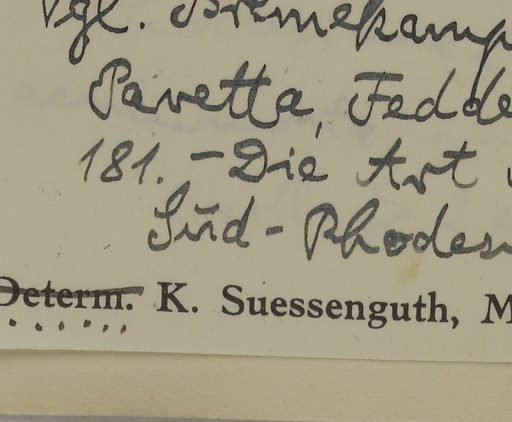 Vgl. Bremekamp
Pavetta, Fedde
181. - Die Art
Süd - Rhodes
Determ. K. Suessenguth, M